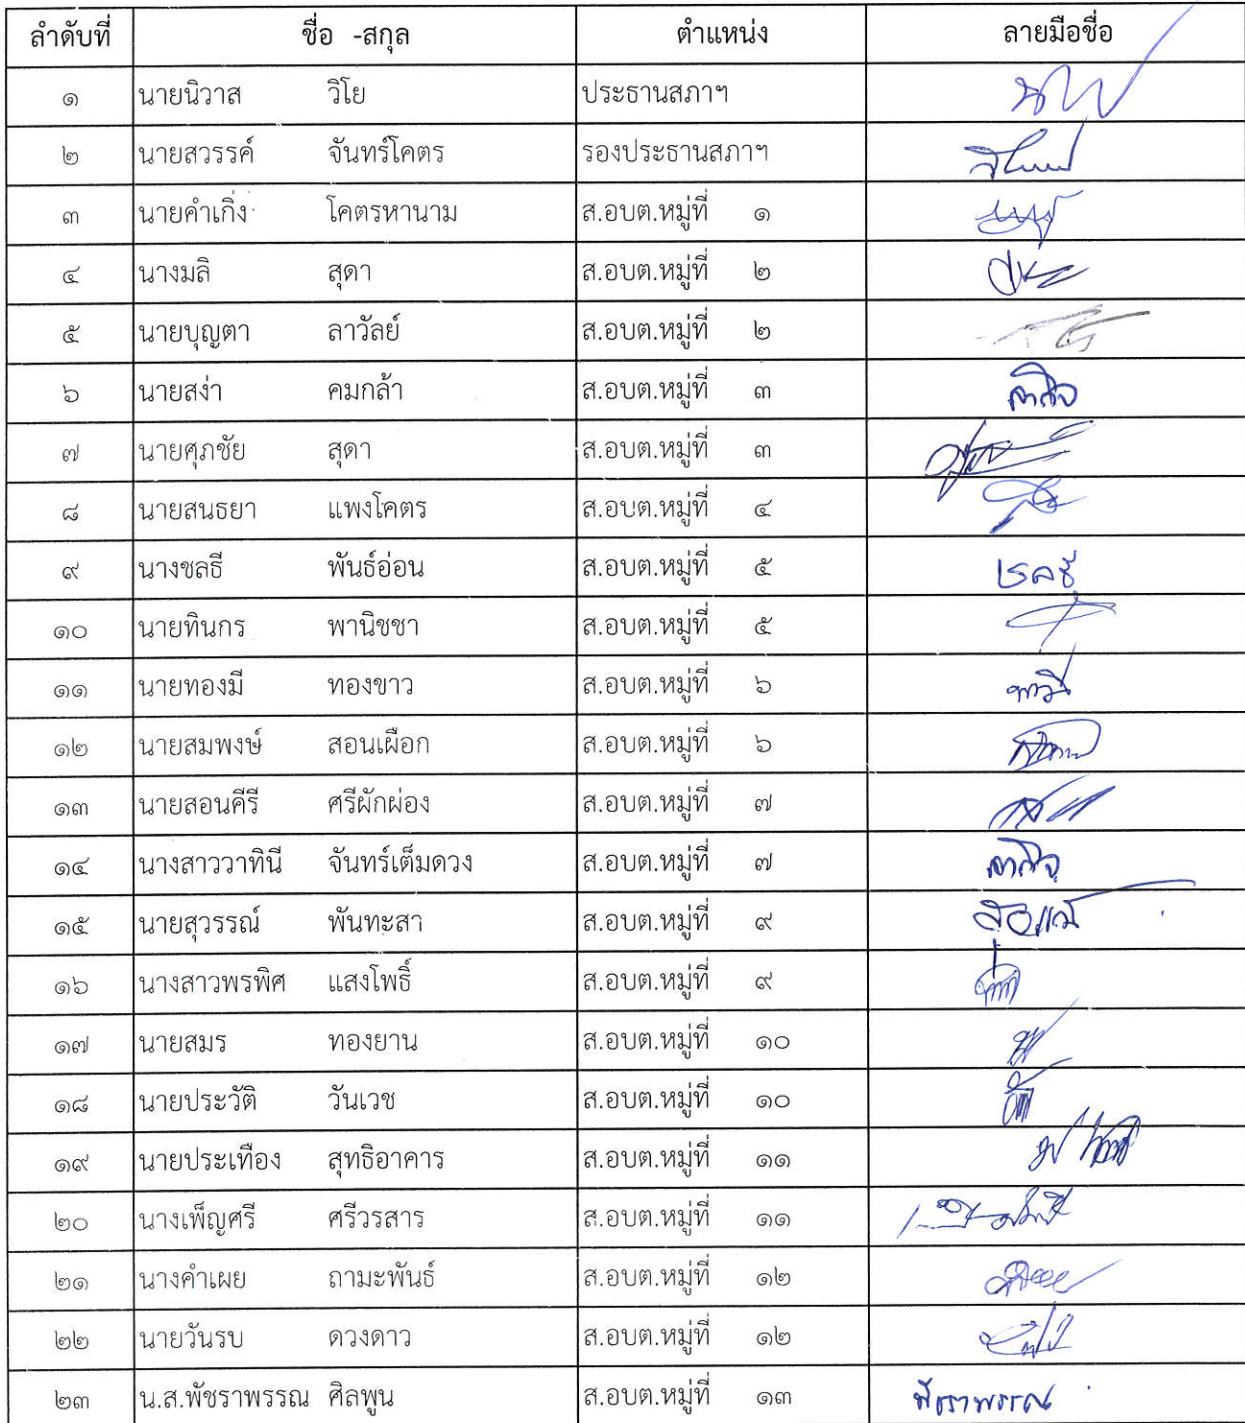 ลำดับที่ ชื่อ -สกุล ตำแหน่ง ลายมือชื่อ
๑ นายนิวาส วิโย ประธานสภาฯ
๒ นายสวรรค์ จันทร์โคตร รองประธานสภาฯ
๓ นายคำเกิ่ง โคตรหานาม ส.อบต.หมู่ที่ ๑
๔ นางมลิ สุดา ส.อบต.หมู่ที่ ๒
๕ นายบุญตา ลาวัลย์ ส.อบต.หมู่ที่ ๒
๖ นายสง่า คมกล้า ส.อบต.หมู่ที่ ๓ ลากิจ
๗ นายศุภชัย สุดา ส.อบต.หมู่ที่ ๓
๘ นายสนธยา แพงโคตร ส.อบต.หมู่ที่ ๔
๙ นางชลธี พันธ์อ่อน ส.อบต.หมู่ที่ ๕ ชลธี
๑๐ นายทินกร พานิชชา ส.อบต.หมู่ที่ ๕
๑๑ นายทองมี ทองขาว ส.อบต.หมู่ที่ ๖
๑๒ นายสมพงษ์ สอนเผือก ส.อบต.หมู่ที่ ๖
๑๓ นายสอนคีรี ศรีผักผ่อง ส.อบต.หมู่ที่ ๗
๑๔ นางสาววาทินี จันทร์เต็มดวง ส.อบต.หมู่ที่ ๗ ลากิจ
๑๕ นายสุวรรณ์ พันทะสา ส.อบต.หมู่ที่ ๙
๑๖ นางสาวพรพิศ แสงโพธิ์ ส.อบต.หมู่ที่ ๙
๑๗ นายสมร ทองยาน ส.อบต.หมู่ที่ ๑๐
๑๘ นายประวัติ วันเวช ส.อบต.หมู่ที่ ๑๐
๑๙ นายประเทือง สุทธิอาคาร ส.อบต.หมู่ที่ ๑๑
๒๐ นางเพ็ญศรี ศรีวรสาร ส.อบต.หมู่ที่ ๑๑
๒๑ นางคำเผย ถามะพันธ์ ส.อบต.หมู่ที่ ๑๒
๒๒ นายวันรบ ดวงดาว ส.อบต.หมู่ที่ ๑๒
๒๓ น.ส.พัชราพรรณ ศิลพูน ส.อบต.หมู่ที่ ๑๓ พัชราพรรณ